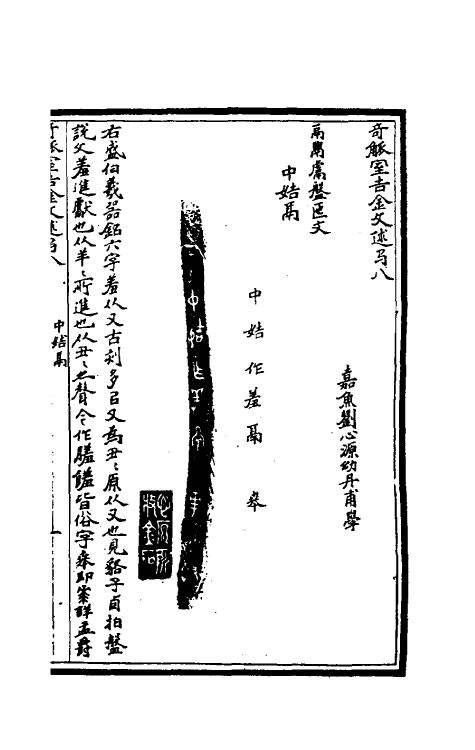 奇觚室吉金文述弓八
嘉魚劉心源幼丹甫學
鬲鬳盤匜文
中姞鬲
中姞作羞鬲
右盛伯羲器銘六字羞从又古刻多㠯又為丑丑原从又也見貉子卣拍盤
說文羞進獻也从羊羊所進也从丑丑亦聲今作膳饈皆俗字
奇觚室吉金文述弓八
中姞鬲
一